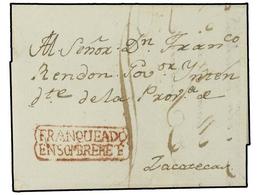 Al Señor Dn. Franco
Rendon Govor. y Inten
dte de la Prova. de
Zacatecas
FRANQUEADO
EN SOMBRERETE